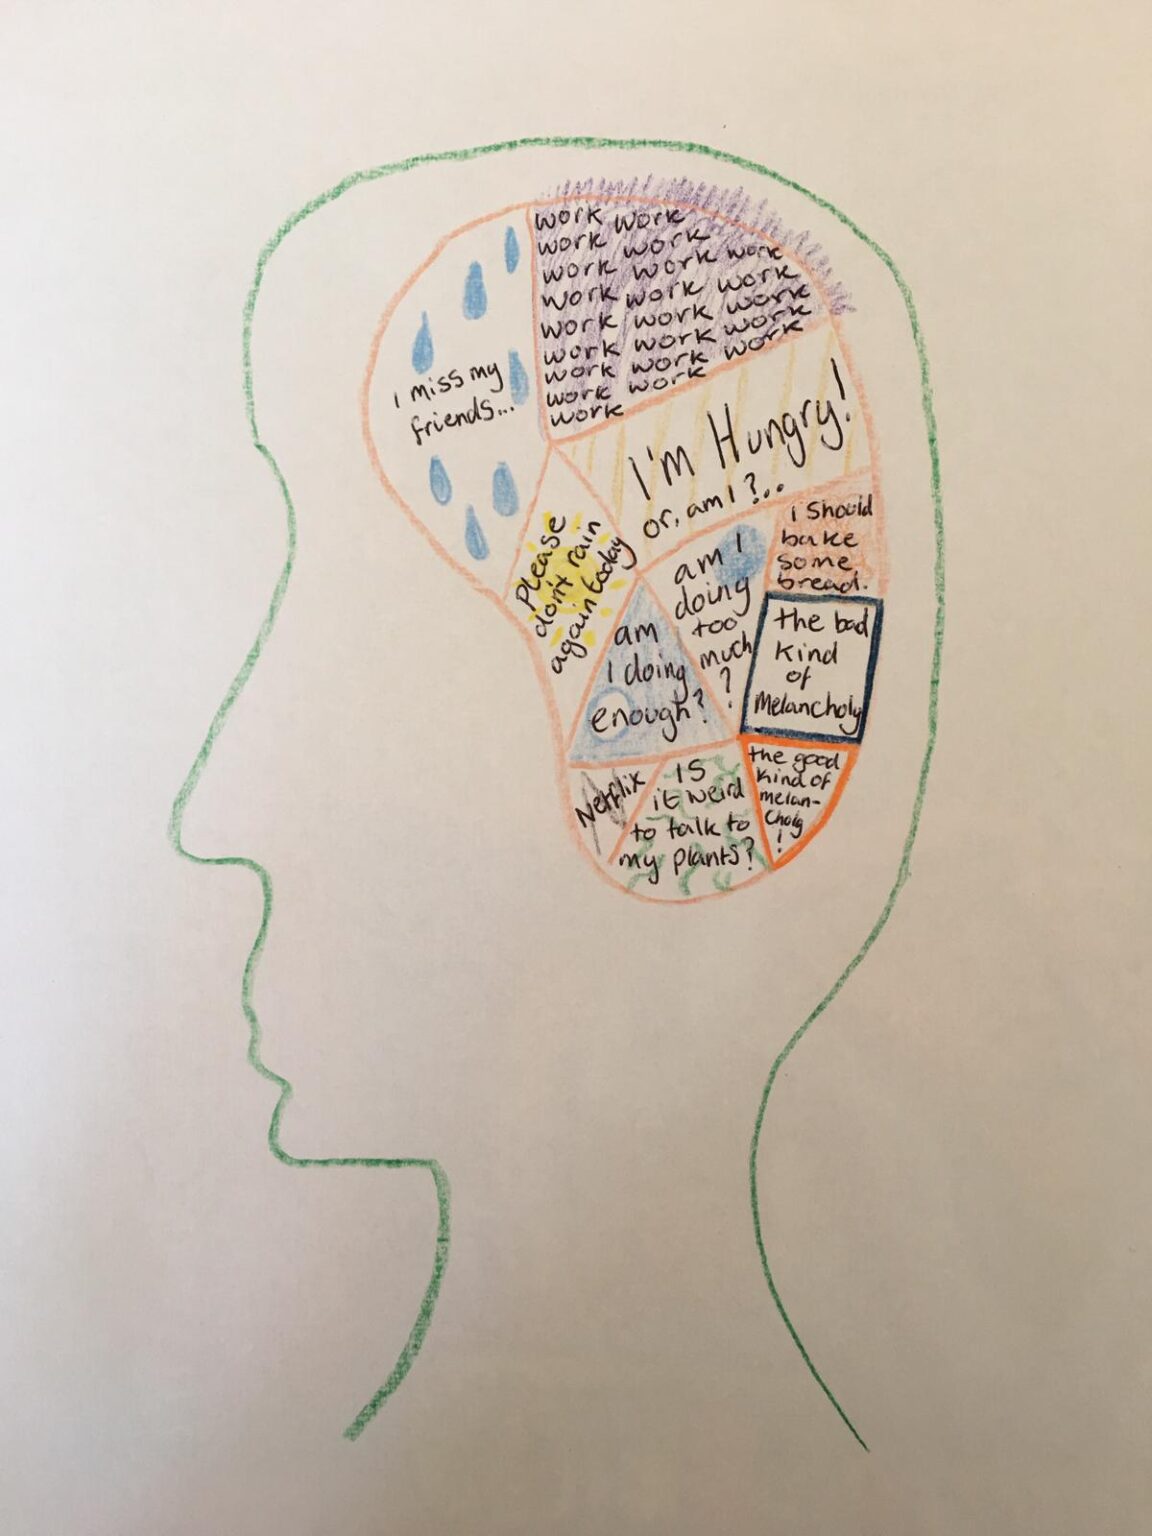 work work
work work
work work work
work work work
work work work
work work work
work work work
work work
work
i miss my
friends...
I'm Hungry!
or, am I?...
Please
don't rain
again today
am I
doing
too
much
?
i should
bake
some
bread.
am
I doing
enough?
the bad
kind
of
Melancholy
Netflix
IS
it weird
to talk to
my plants?
the good
kind of
melan-
choly
!